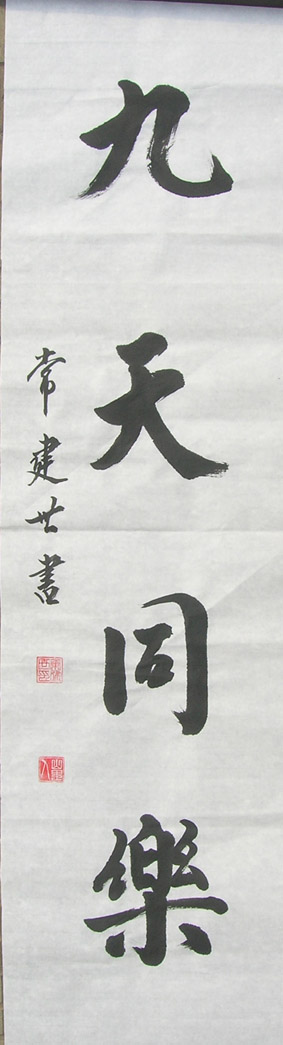 九天同樂
常建世書